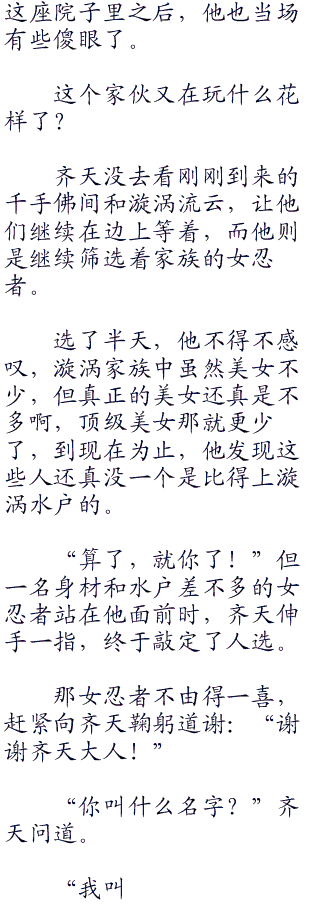 这座院子里之后，他也当场
有些傻眼了。
这个家伙又在玩什么花
样了？
齐天没去看刚刚到来的
千手佛间和漩涡流云，让他
们继续在边上等着，而他则
是继续筛选着家族的女忍
者。
选了半天，他不得不感
叹，漩涡家族中虽然美女不
少，但真正的美女还真是不
多啊，顶级美女那就更少
了，到现在为止，他发现这
些人还真没一个是比得上漩
涡水户的。
“算了，就你了！”但
一名身材和水户差不多的女
忍者站在他面前时，齐天伸
手一指，终于敲定了人选。
那女忍者不由得一喜，
赶紧向齐天鞠躬道谢：“谢
谢齐天大人！”
“你叫什么名字？”齐
天问道。
“我叫